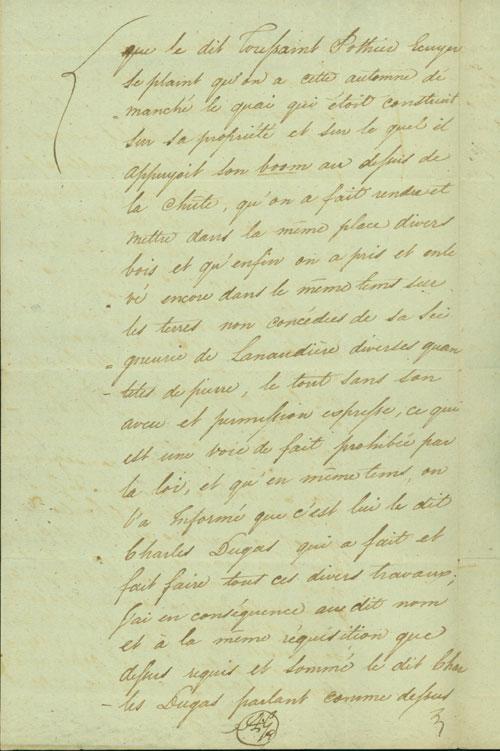 que le dit Toussaint Pothier Ecuyer
se plaint qu'on a cette automne dé
manché le quai qui étoit construit
sur sa propriété et sur le quel il
appuyoit son boom au depuis de
la chûte, qu'on a fait rendre et
mettre dans la même place divers
bois et qu'enfin on a pris et enle
vé encore dans le même tems sur
les terres non concédées de sa Sei
= gneurie de Lanaudière diverses quan
- tités de pierre, le tout sans son
aveu et permission expresse, ce qui
est une voie de fait prohibée par
la loi, et qu'en même tems, on
l'a Informé que c'est lui le dit
Charles Dugas qui a fait et
fait faire tout ces divers travaux;
J'ai en conséquence au dit nom
et à la même réquisition que
dessus requis et sommé le dit Char
- les Dugas parlant comme dessus